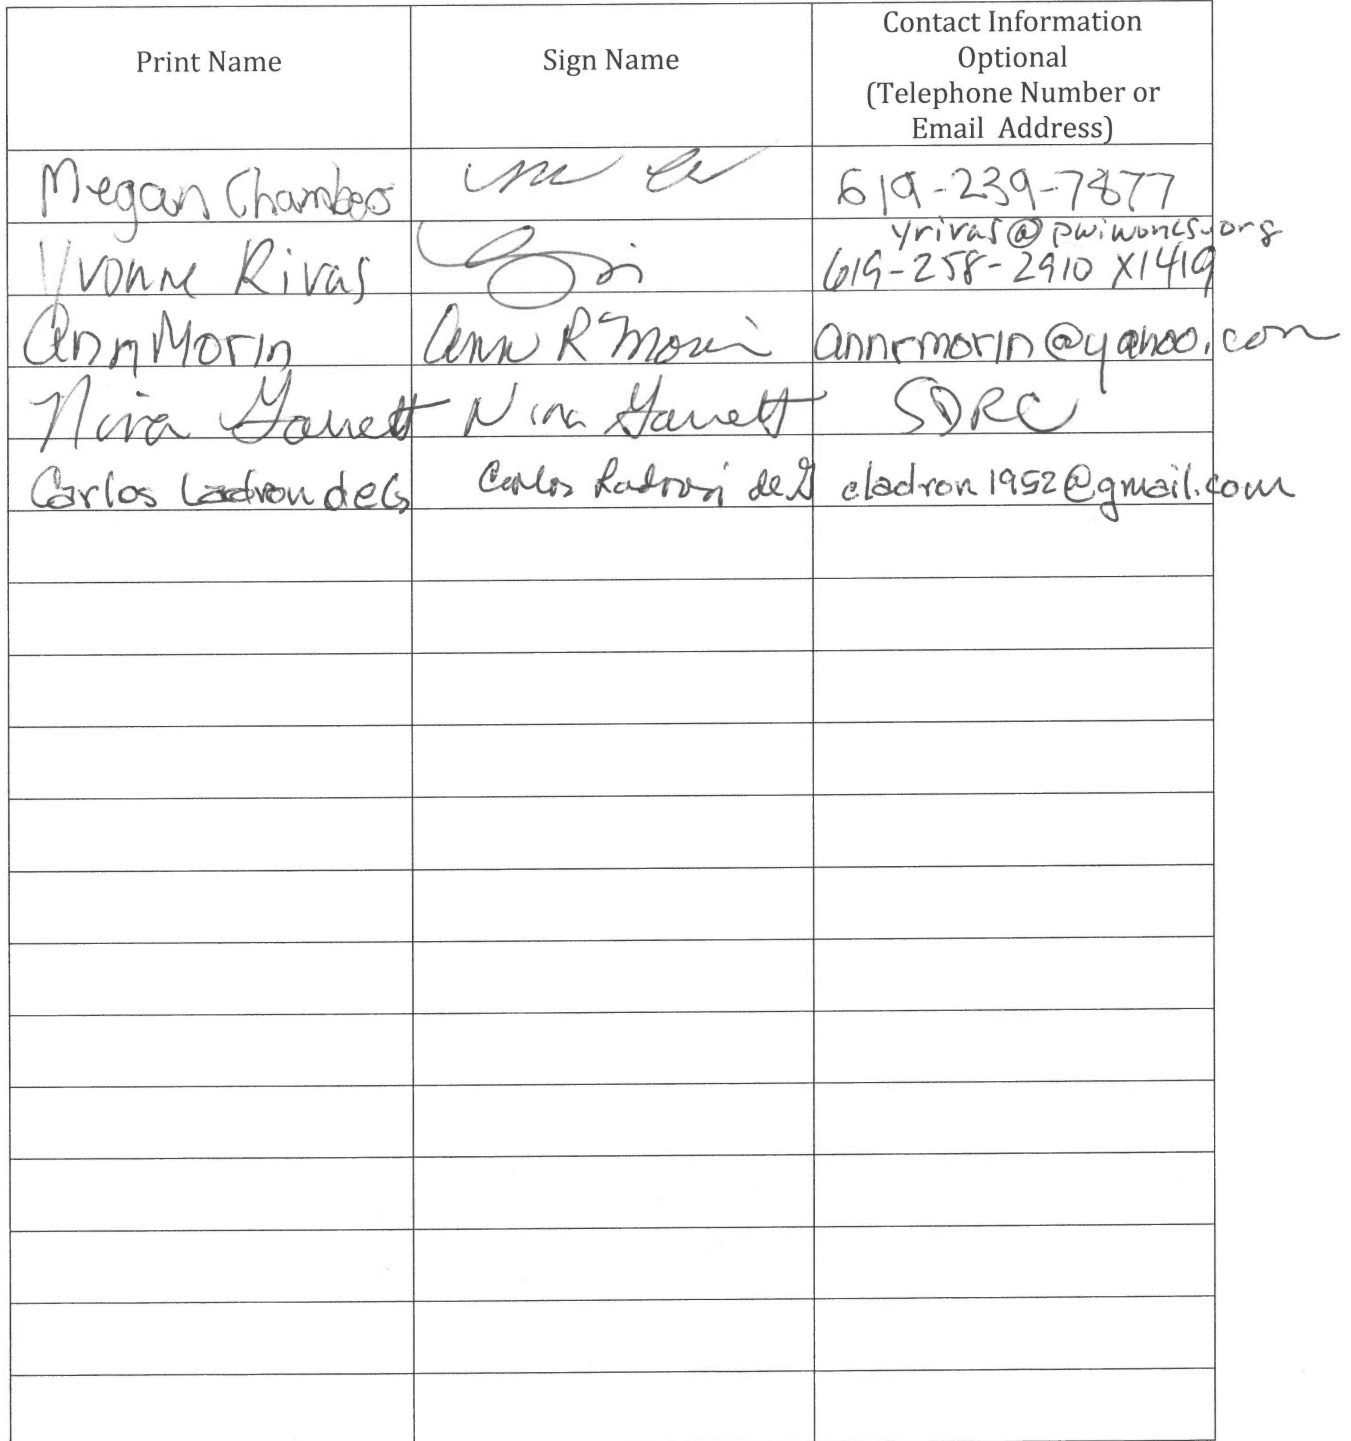 Print Name
Sign Name
Contact Information
Optional
(Telephone Number or
Email Address)
Megan Chambers
619-239-7877
Yvonne Rivas
yrivas@pwiworks.org
619-258-2910 X1419
Ann Morin
Ann R Morin
annrmorin@yahoo.com
Nina Garrett
Nina Garrett
SDRC
Carlos Ladron de G
Carlos Ladron de G
cladron1952@gmail.com